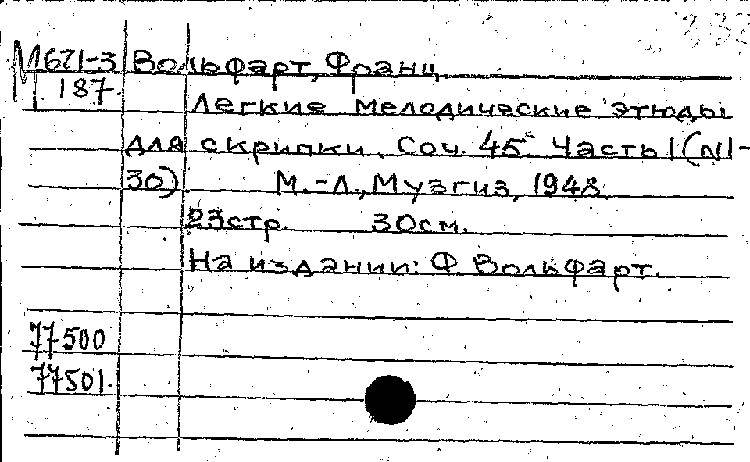 М671-3 Вольфарт, Франц.
187. Легкие мелодические этюды
для скрипки. Соч. 45. Часть I (N1-
30) М.-Л., Музгиз, 1948.
23стр. 30см.
На издании: Ф. Волькфарт.
77500
77501.